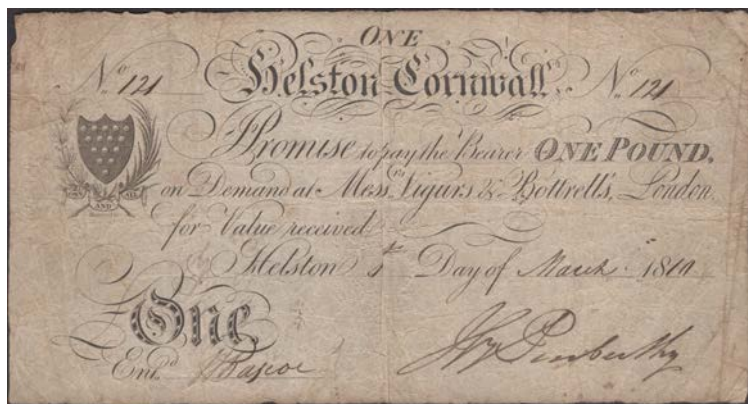 ONE
No 121 Helston Cornwall No 121
I Promise to pay the Bearer ONE POUND.
on Demand at Messrs Vigurs & Bottrell's, London.
for Value received
ONE AND ALL
Helston Day of March 1810
One
Entd